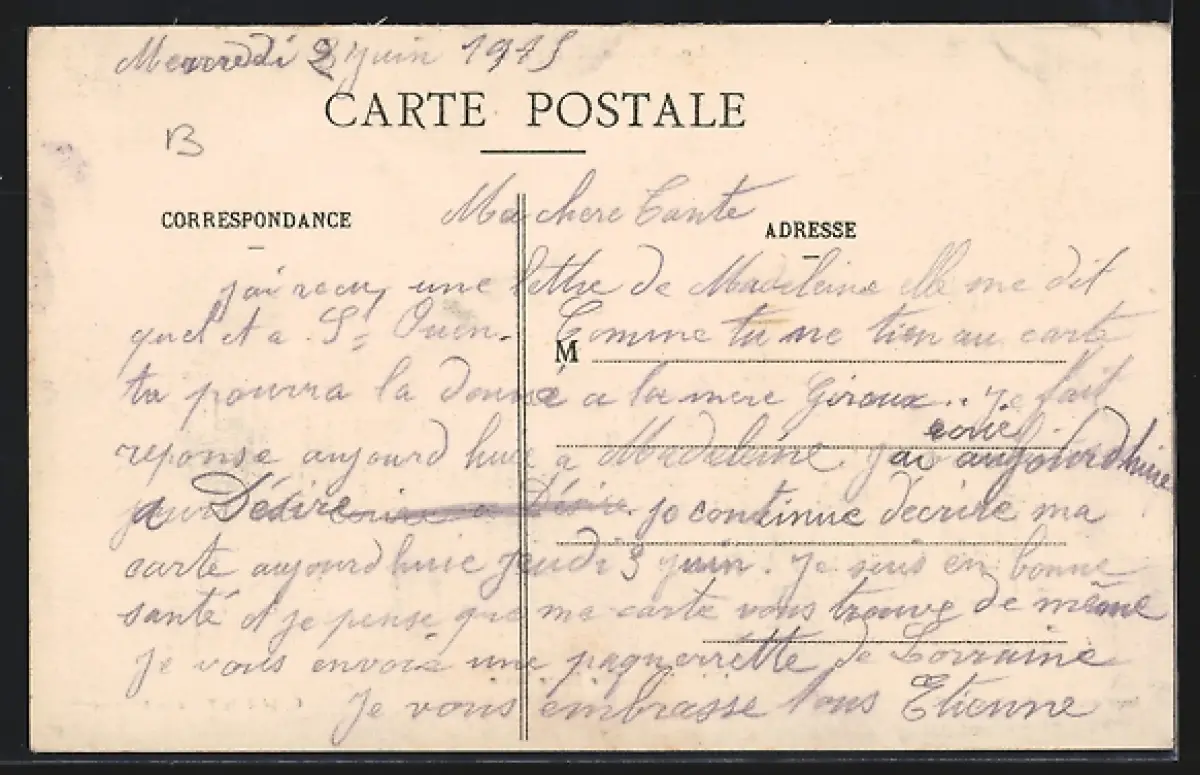 Mercredi 2 juin 1915
CARTE POSTALE
B
Ma chere Tante
CORRESPONDANCE
ADRESSE
j'ai recu une lettre de Madeleine elle me dit
quel et a St Ouen. Comme tu ne tien au carte
M
tu pourra la donne a la mere Giroux.. je fait
reponse aujourd huie a Madeleine. j'ai ecrie aujourdhuie
a Désire je continue décrire ma
carte aujourdhuie jeudi 3 juin. Je suis en bonne
santé et je pense que ma carte vous trouve de même
Je vous envoie une paquerrette de Lorraine
Je vous embrasse tous Etienne